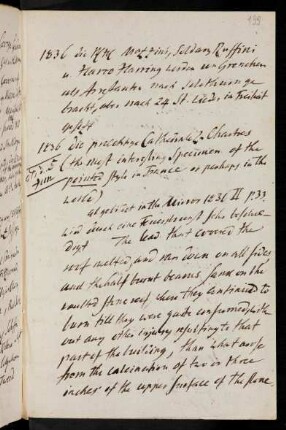 199
1836 die HHn Mazzini, Soldan, Ruffini
u. Harro Harring werden von Grenchen
als Arrestanten nach Solothurn ge
bracht, aber nach 24 St. wieder in Freiheit
gesetzt
1836 die prächtige Cathedrale z. Chartres
(the most interesting Specimen of the
pointed style in France or perhaps in the
World)
in the Mirror 1836 II p. 33.
wird durch eine Feuersbrunst sehr beschä
digt The lead that covered the
roof melted and ran down on all sides
and the half burnt beams sank on the
vaulted stone roof, where they continued to
burn till they were quite consumed, with
out any other injury resulting to that
part of the building, than what arose
from the calcination of two or three
inches of the upper surface of the stone